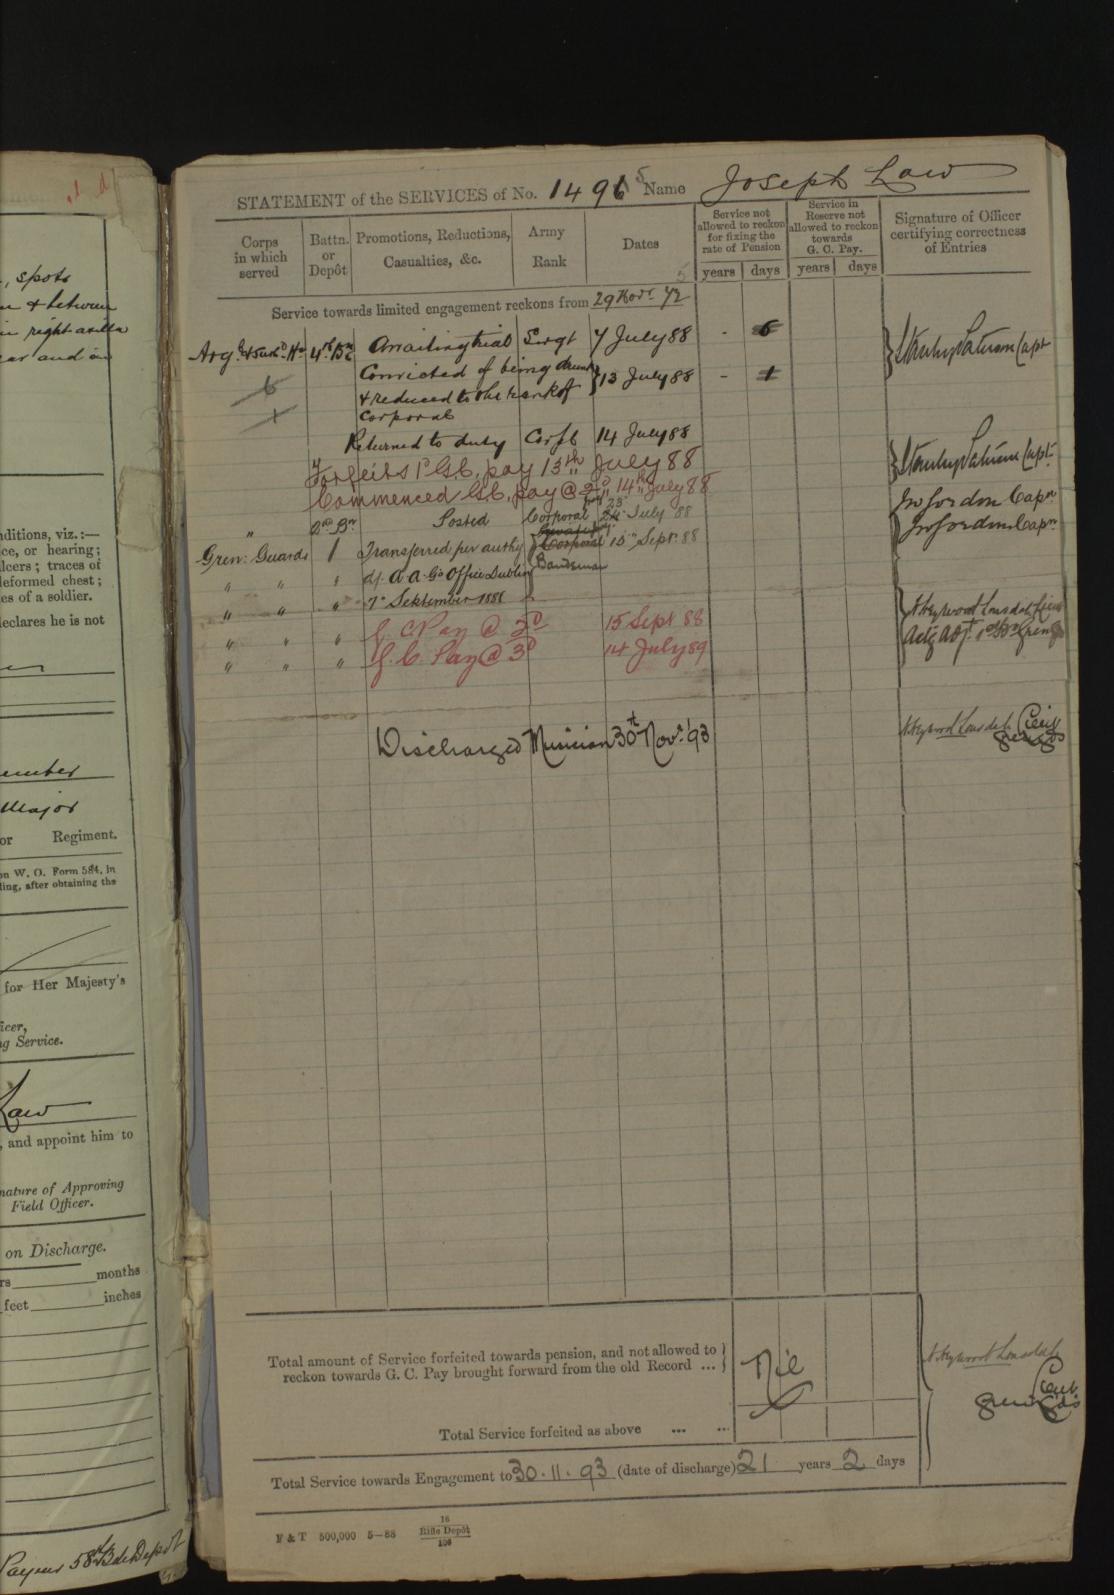 , spots
& between
in right axilla
ear and in
nditions, viz.:—
ce, or hearing;
ulcers; traces of
deformed chest;
es of a soldier.
declares he is not
ember
Major
or Regiment.
on W. O. Form 584, in
ling, after obtaining the
for Her Majesty's
icer,
ng Service.
Law
, and appoint him to
nature of Approving
Field Officer.
on Discharge.
rs months
feet inches
58th Bde Depôt
STATEMENT of the SERVICES of No. 1496 5 Name Joseph Law
Corps in which served
Battn. or Depôt
Promotions, Reductions, Casualties, &c.
Army Rank
Dates
Service not allowed to reckon for fixing the rate of Pension
years days
Service in Reserve not allowed to reckon towards G. C. Pay.
years days
Signature of Officer certifying correctness of Entries
Service towards limited engagement reckons from 29 Novr 72
Arg & Suthd Hrs 4th Bn Awaiting trial Sergt 7 July 88 - 6
Convicted of being drunk
& reduced to the rank of } 13 July 88 - 1
Corporal
Returned to duty Corpl 14 July 88
Forfeits 1d G.C. pay 13th July 88
Commenced G.C. pay @ 2d 14th July 88
" 2nd Bn Posted Corporal 23 July 88
Gren: Guards 1 Transferred per authy Corporal 15 Sept. 88
" " " of A.A.G's Office Dublin Bandsman
" " " 7 September 1888
" " " G. C Pay @ 2d 15 Sept 88
" " " G. C. Pay @ 3d 14 July 89
Discharged Musician 30th Novr '93
Total amount of Service forfeited towards pension, and not allowed to
reckon towards G. C. Pay brought forward from the old Record ... } Nil
Total Service forfeited as above ... ...
Total Service towards Engagement to 30.11.93 (date of discharge) 21 years 2 days
F & T 500,000 5—88 16 Rifle Depôt